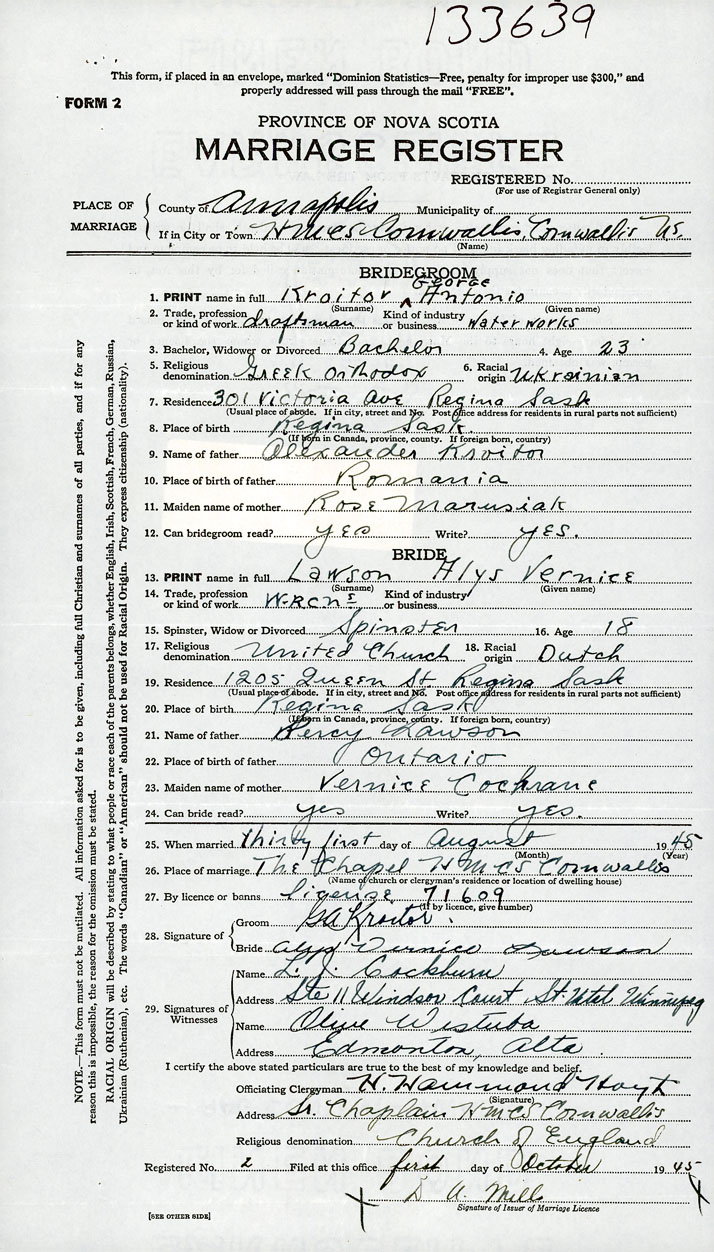 133639
This form, if placed in an envelope, marked "Dominion Statistics—Free, penalty for improper use $300," and
properly addressed will pass through the mail "FREE".
FORM 2
PROVINCE OF NOVA SCOTIA
MARRIAGE REGISTER
REGISTERED No.
(For use of Registrar General only)
PLACE OF MARRIAGE
County of Annapolis Municipality of
If in City or Town HMCS Cornwallis, Cornwallis NS.
(Name)
BRIDEGROOM
George
1. PRINT name in full Kroitor ^ Antonio
(Surname) (Given name)
2. Trade, profession or kind of work draftsman Kind of industry or business Water works
3. Bachelor, Widower or Divorced Bachelor 4. Age 23
5. Religious denomination Greek Orthodox 6. Racial origin Ukrainian
7. Residence 301 Victoria Ave Regina Sask
(Usual place of abode. If in city, street and No. Post office address for residents in rural parts not sufficient)
8. Place of birth Regina Sask.
(If born in Canada, province, county. If foreign born, country)
9. Name of father Alexander Kroitor
10. Place of birth of father Romania
11. Maiden name of mother Rose Marusiak
12. Can bridegroom read? yes Write? yes.
BRIDE
13. PRINT name in full Lawson Alys Vernice
(Surname) (Given name)
14. Trade, profession or kind of work W.R.C.N.S Kind of industry or business
15. Spinster, Widow or Divorced Spinster 16. Age 18
17. Religious denomination United Church 18. Racial origin Dutch
19. Residence 1205 Queen St Regina Sask
(Usual place of abode. If in city, street and No. Post office address for residents in rural parts not sufficient)
20. Place of birth Regina Sask
(If born in Canada, province, county. If foreign born, country)
21. Name of father Percy Lawson
22. Place of birth of father Ontario
23. Maiden name of mother Vernice Cochrane
24. Can bride read? yes Write? yes.
25. When married thirty first day of August 1945
(Month) (Year)
26. Place of marriage The Chapel HMCS Cornwallis
(Name of church or clergyman's residence or location of dwelling house)
27. By licence or banns license 71609
(If by licence, give number)
28. Signature of
Groom GA Kroitor.
Bride Alys Vernice Lawson
29. Signatures of Witnesses
Name L. J. Cockburn
Address Ste 11 Windsor Court, St. Vital Winnipeg
Name Olyie Wistuba
Address Edmonton, Alta.
I certify the above stated particulars are true to the best of my knowledge and belief.
Officiating Clergyman H. Hammond Hoyt
(Signature)
Address Sr. Chaplain HMCS Cornwallis
Religious denomination Church of England
Registered No. 2 Filed at this office first day of October 1945
D A. Mills
Signature of Issuer of Marriage Licence
[SEE OTHER SIDE]
NOTE.—This form must not be mutilated. All information asked for is to be given, including full Christian and surnames of all parties, and if for any
reason this is impossible, the reason for the omission must be stated.
RACIAL ORIGIN will be described by stating to what people or race each of the parents belongs, whether English, Irish, Scottish, French, German, Russian,
Ukrainian (Ruthenian), etc. The words "Canadian" or "American" should not be used for Racial Origin. They express citizenship (nationality).